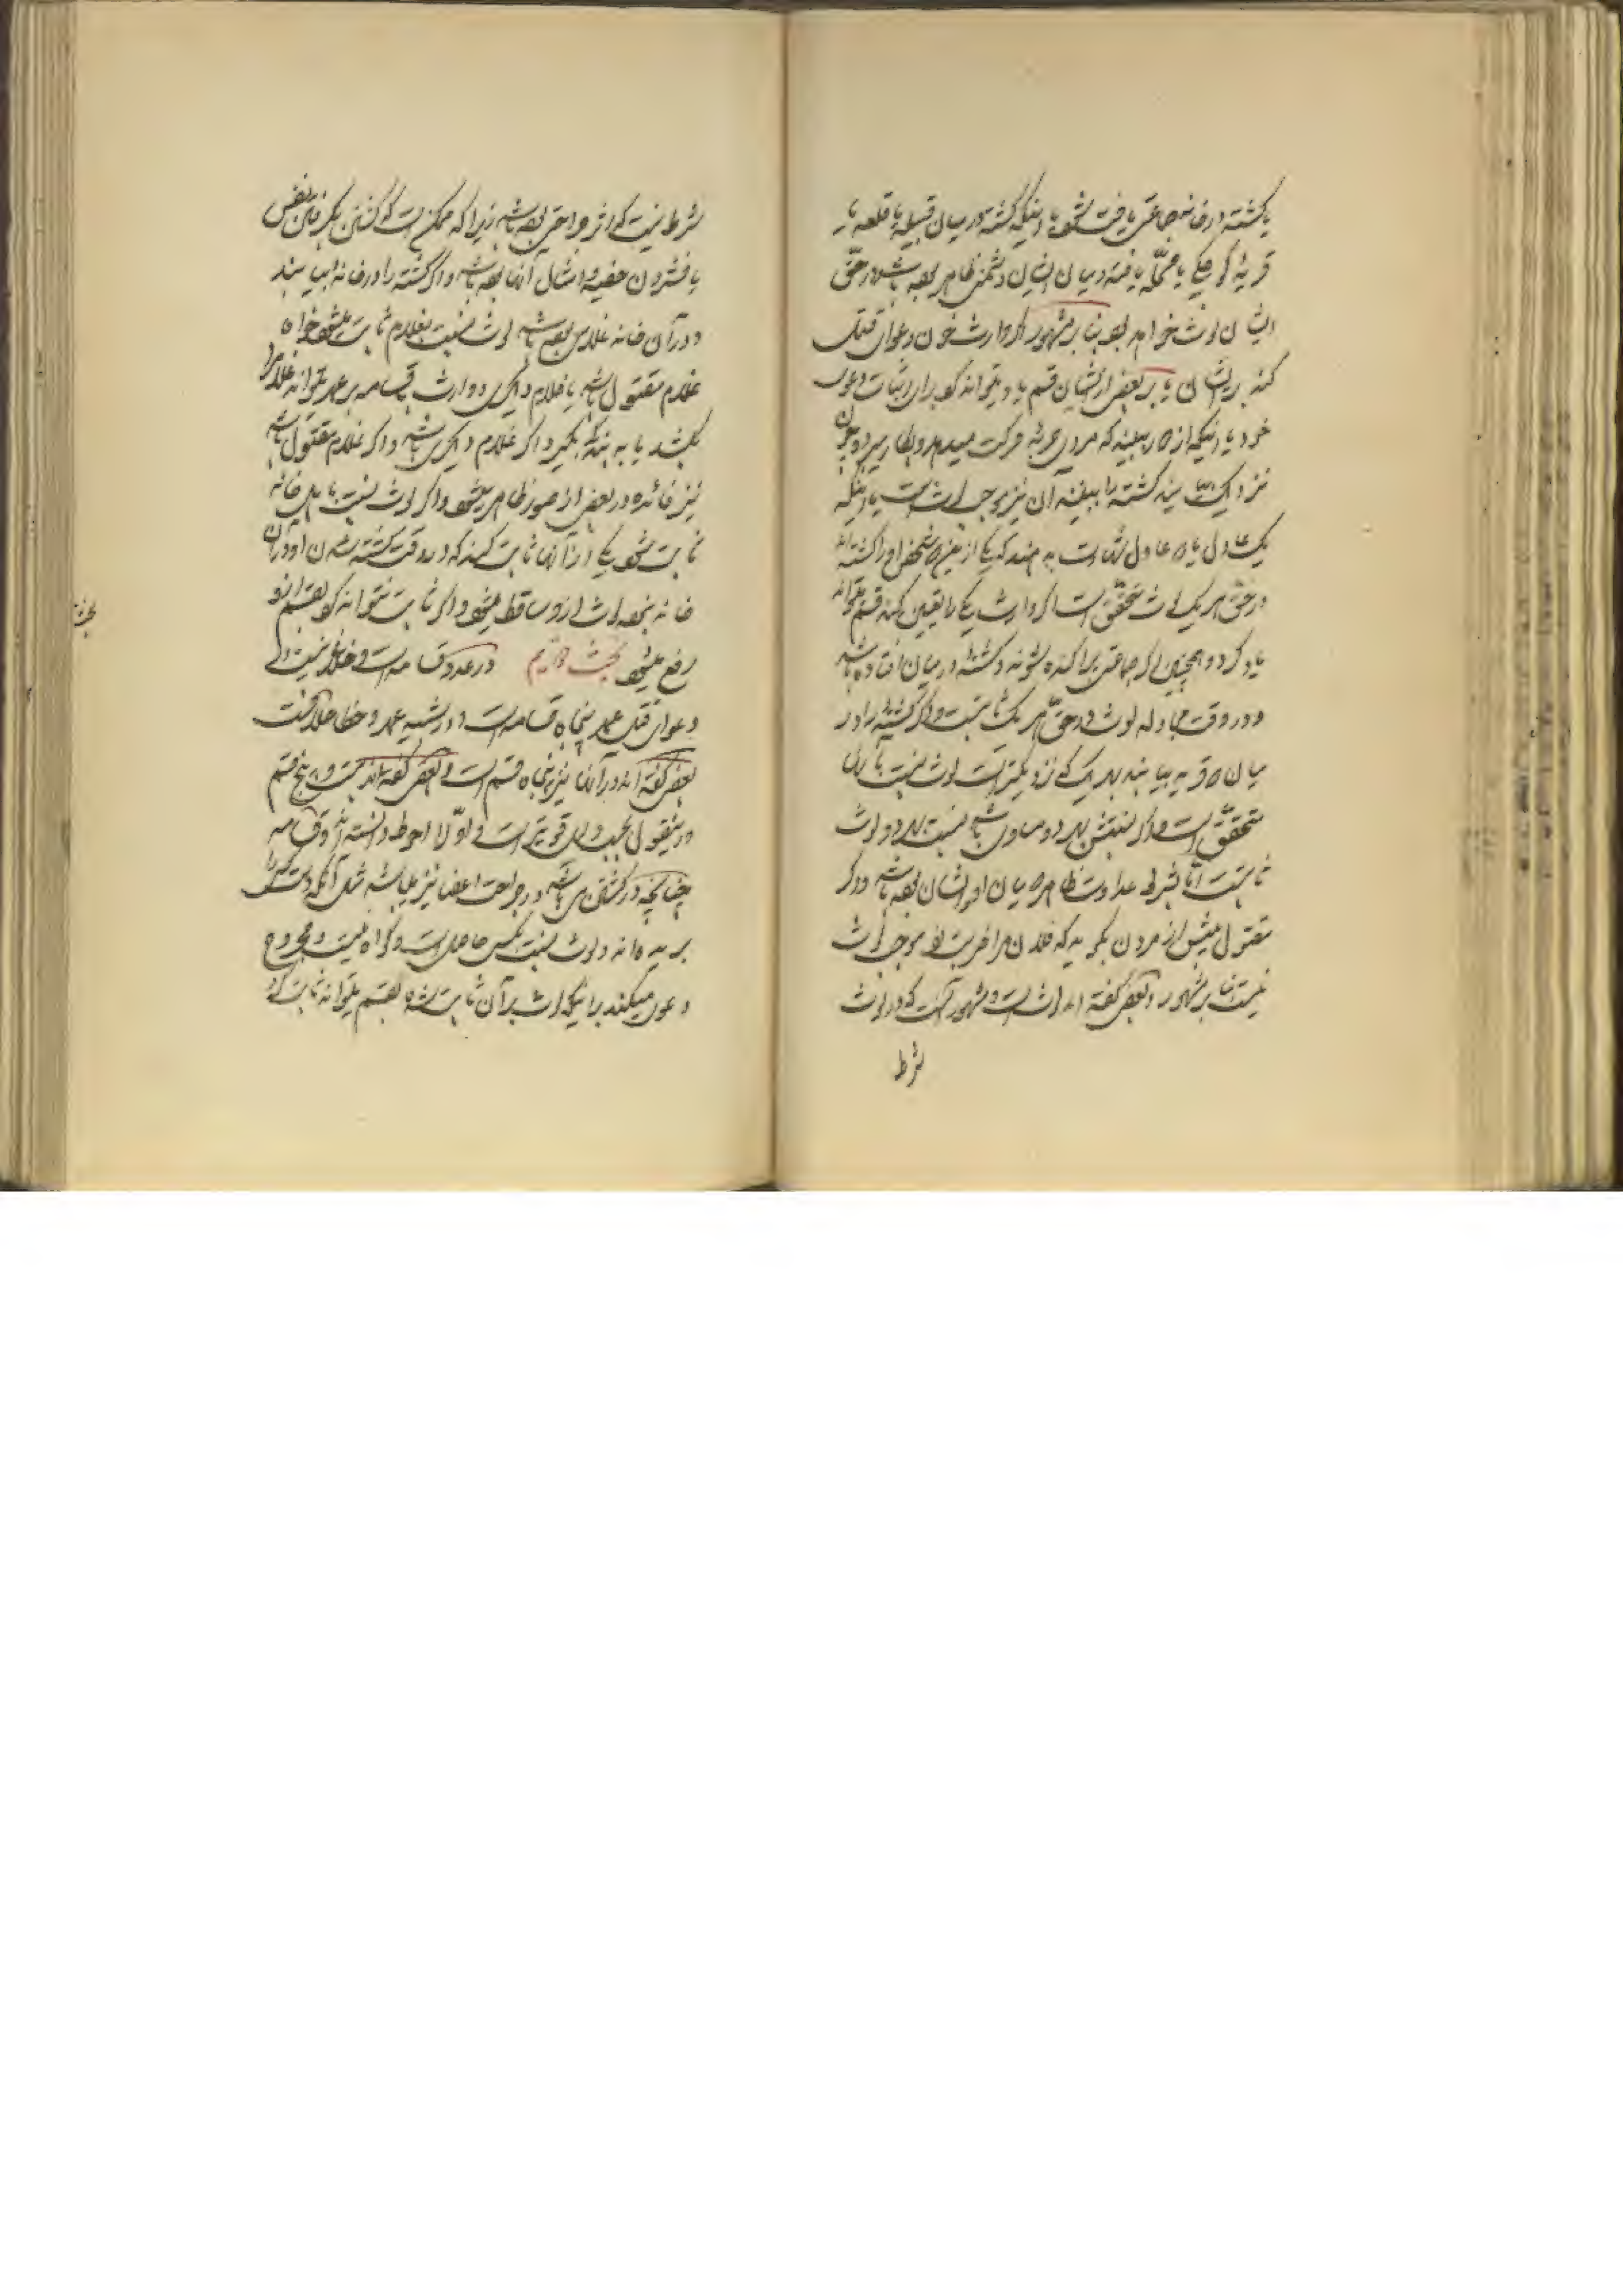 یا کشته در خانه جماعتی یافت شود یا اینکه کشته در میان قبیله یا قلعه یا
قریه کوچکی یا محلّه یافته و میان ایشان دشمنی ظاهر بوده باشد در حقّ
ایشان لوث خواهد بود بنا بر مشهور اگر وارث خون دعوای قتل
کند بر ایشان یا بر بعضی از ایشان قسم یاد میتواند کرد برای اثبات دعوی
خود یا اینکه از دور ببینند که مردی حربه حرکت میدهد و چون
نزدیک آیند کشته را ببینند آن نیز موجب لوث است یا اینکه
یک عادل یا دو عادل شهادت بدهند که یکی از این دو شخص او را کشته‌اند
در حقّ هر یک لوث متحقّق است اگر وارث یکی را تعیین کند قسم میتواند
یاد کرد و همچنین اگر جماعتی پراکنده شوند و کشته در میان افتاده باشد
و در وقت مجادله لوث در حقّ هر یک ثابتست و اگر کشته را در
میان دو قریه بیابند بهر یک که نزدیکتر است لوث نسبت بآن
متحقّق است و اگر نسبتش بهر دو مساوی باشد نسبت بهر دو لوث
ثابتست امّا بشرط عداوت ظاهر میان او و ایشان بوده باشد و اگر
مقتول پیش از مردن بگوید که فلان مرا ضربت زد موجب لوث
نیست بنا بر مشهور و بعضی گفته‌اند لوث است و مشهور آنست که در لوث
شرط
شرط نیست که اثر جراحتی بوده باشد زیرا که ممکن است که کشتن بگرفتن نفس
یا فشردن خصیه و امثال آنها بوده باشد و اگر کشته را در خانه بیابند
و در آن خانه غلامی بوده باشد لوث نسبت بغلام ثابت میشود خواه
غلام مقتول باشد یا غلام دیگری و وارث بقسامه بر عمد میتواند غلام را
بکشد یا به بندگی بگیرد اگر غلام دیگری باشد و اگر غلام مقتول باشد
نیز فائده در بعضی از صور ظاهر میشود و اگر لوث نسبت باهل خانه
ثابت شود یکی از آنها ثابت کند که در وقت کشته شدن او در آن
خانه نبوده لوث از او ساقط میشود و اگر ثابت نتواند کرد بقسم از او
رفع میشود بحث دوازدهم در عدد قسامه است و خلاف نیست در
دعوای قتل عمد پنجاه قسامه است و در شبیه عمد و خطا خلافست
بعضی گفته‌اند در آنها نیز پنجاه قسم است و بعضی گفته‌اند بیست و پنج قسم
و این قول بحسب دلیل قویتر است و اوّل را احوط دانسته‌اند و قسامه
چنانچه در کشتن می‌باشد در جراحت اعضا نیز میباشد مثل آنکه دست کسی را
بریده‌اند و لوث نسبت بکسی حاصل است و گواه نیست و مجروح
دعوی میکند بر اینکه لوث بر آن ثابت شده بقسم میتواند ثابت کرد